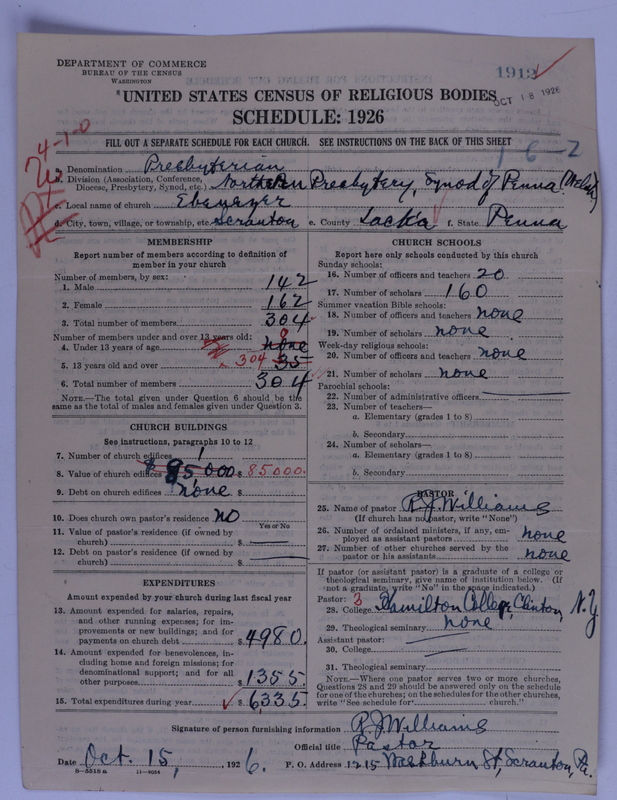 DEPARTMENT OF COMMERCE
BUREAU OF THE CENSUS
WASHINGTON
1912
OCT 18 1926
UNITED STATES CENSUS OF RELIGIOUS BODIES
SCHEDULE: 1926
FILL OUT A SEPARATE SCHEDULE FOR EACH CHURCH. SEE INSTRUCTIONS ON THE BACK OF THIS SHEET
24-1-0
1 6-2
a. Denomination Presbyterian
b. Division (Association, Conference, Diocese, Presbytery, Synod, etc.) Northern Presbytery, Synod of Penna (Welsh)
c. Local name of church Ebenezer
d. City, town, village, or township, etc. Scranton e. County Lacka f. State Penna
MEMBERSHIP
Report number of members according to definition of
member in your church
Number of members, by sex:
1. Male 142
2. Female 162
3. Total number of members 304
Number of members under and over 13 years old:
4. Under 13 years of age none 0
5. 13 years old and over 304 35
6. Total number of members 304
NOTE.—The total given under Question 6 should be the
same as the total of males and females given under Question 3.
CHURCH BUILDINGS
See instructions, paragraphs 10 to 12
7. Number of church edifices 1
8. Value of church edifices $85000 $ 85000.
9. Debt on church edifices none $
10. Does church own pastor's residence no
Yes or No
11. Value of pastor's residence (if owned by
church) $
12. Debt on pastor's residence (if owned by
church) $
EXPENDITURES
Amount expended by your church during last fiscal year
13. Amount expended for salaries, repairs,
and other running expenses; for im-
provements or new buildings; and for
payments on church debt $ 4980.
14. Amount expended for benevolences, in-
cluding home and foreign missions; for
denominational support; and for all
other purposes $ 1355.
15. Total expenditures during year $ 6335.
CHURCH SCHOOLS
Report here only schools conducted by this church
Sunday schools:
16. Number of officers and teachers 20
17. Number of scholars 160
Summer vacation Bible schools:
18. Number of officers and teachers none
19. Number of scholars none
Week-day religious schools:
20. Number of officers and teachers none
21. Number of scholars none
Parochial schools:
22. Number of administrative officers
23. Number of teachers—
a. Elementary (grades 1 to 8)
b. Secondary
24. Number of scholars—
a. Elementary (grades 1 to 8)
b. Secondary
PASTOR
25. Name of pastor R. J. Williams
(If church has no pastor, write "None")
26. Number of ordained ministers, if any, em-
ployed as assistant pastors none
27. Number of other churches served by the
pastor or his assistants none
If pastor (or assistant pastor) is a graduate of a college or
theological seminary, give name of institution below. (If
not a graduate, write "No" in the space indicated.)
Pastor: 3
28. College Hamilton College, Clinton, N.Y.
29. Theological seminary none
Assistant pastor:
30. College
31. Theological seminary
NOTE.—Where one pastor serves two or more churches,
Questions 28 and 29 should be answered only on the schedule
for one of the churches; on the schedules for the other churches,
write "See schedule for church."
Signature of person furnishing information R. J. Williams
Official title Pastor
Date Oct. 15, 1926. P. O. Address 1215 Washburn St, Scranton, Pa.
8-5518a 11-9054